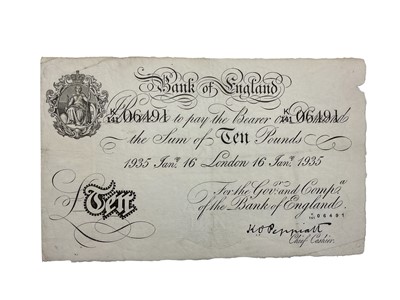 Bank of England
K/141 06491 I Promise to pay the Bearer on Demand K/141 06491
the Sum of Ten Pounds
1935 Jany. 16 London 16 Jany. 1935
For the Govr. and Compa.
of the Bank of England.
06491
£Ten
K O Peppiatt
Chief Cashier.